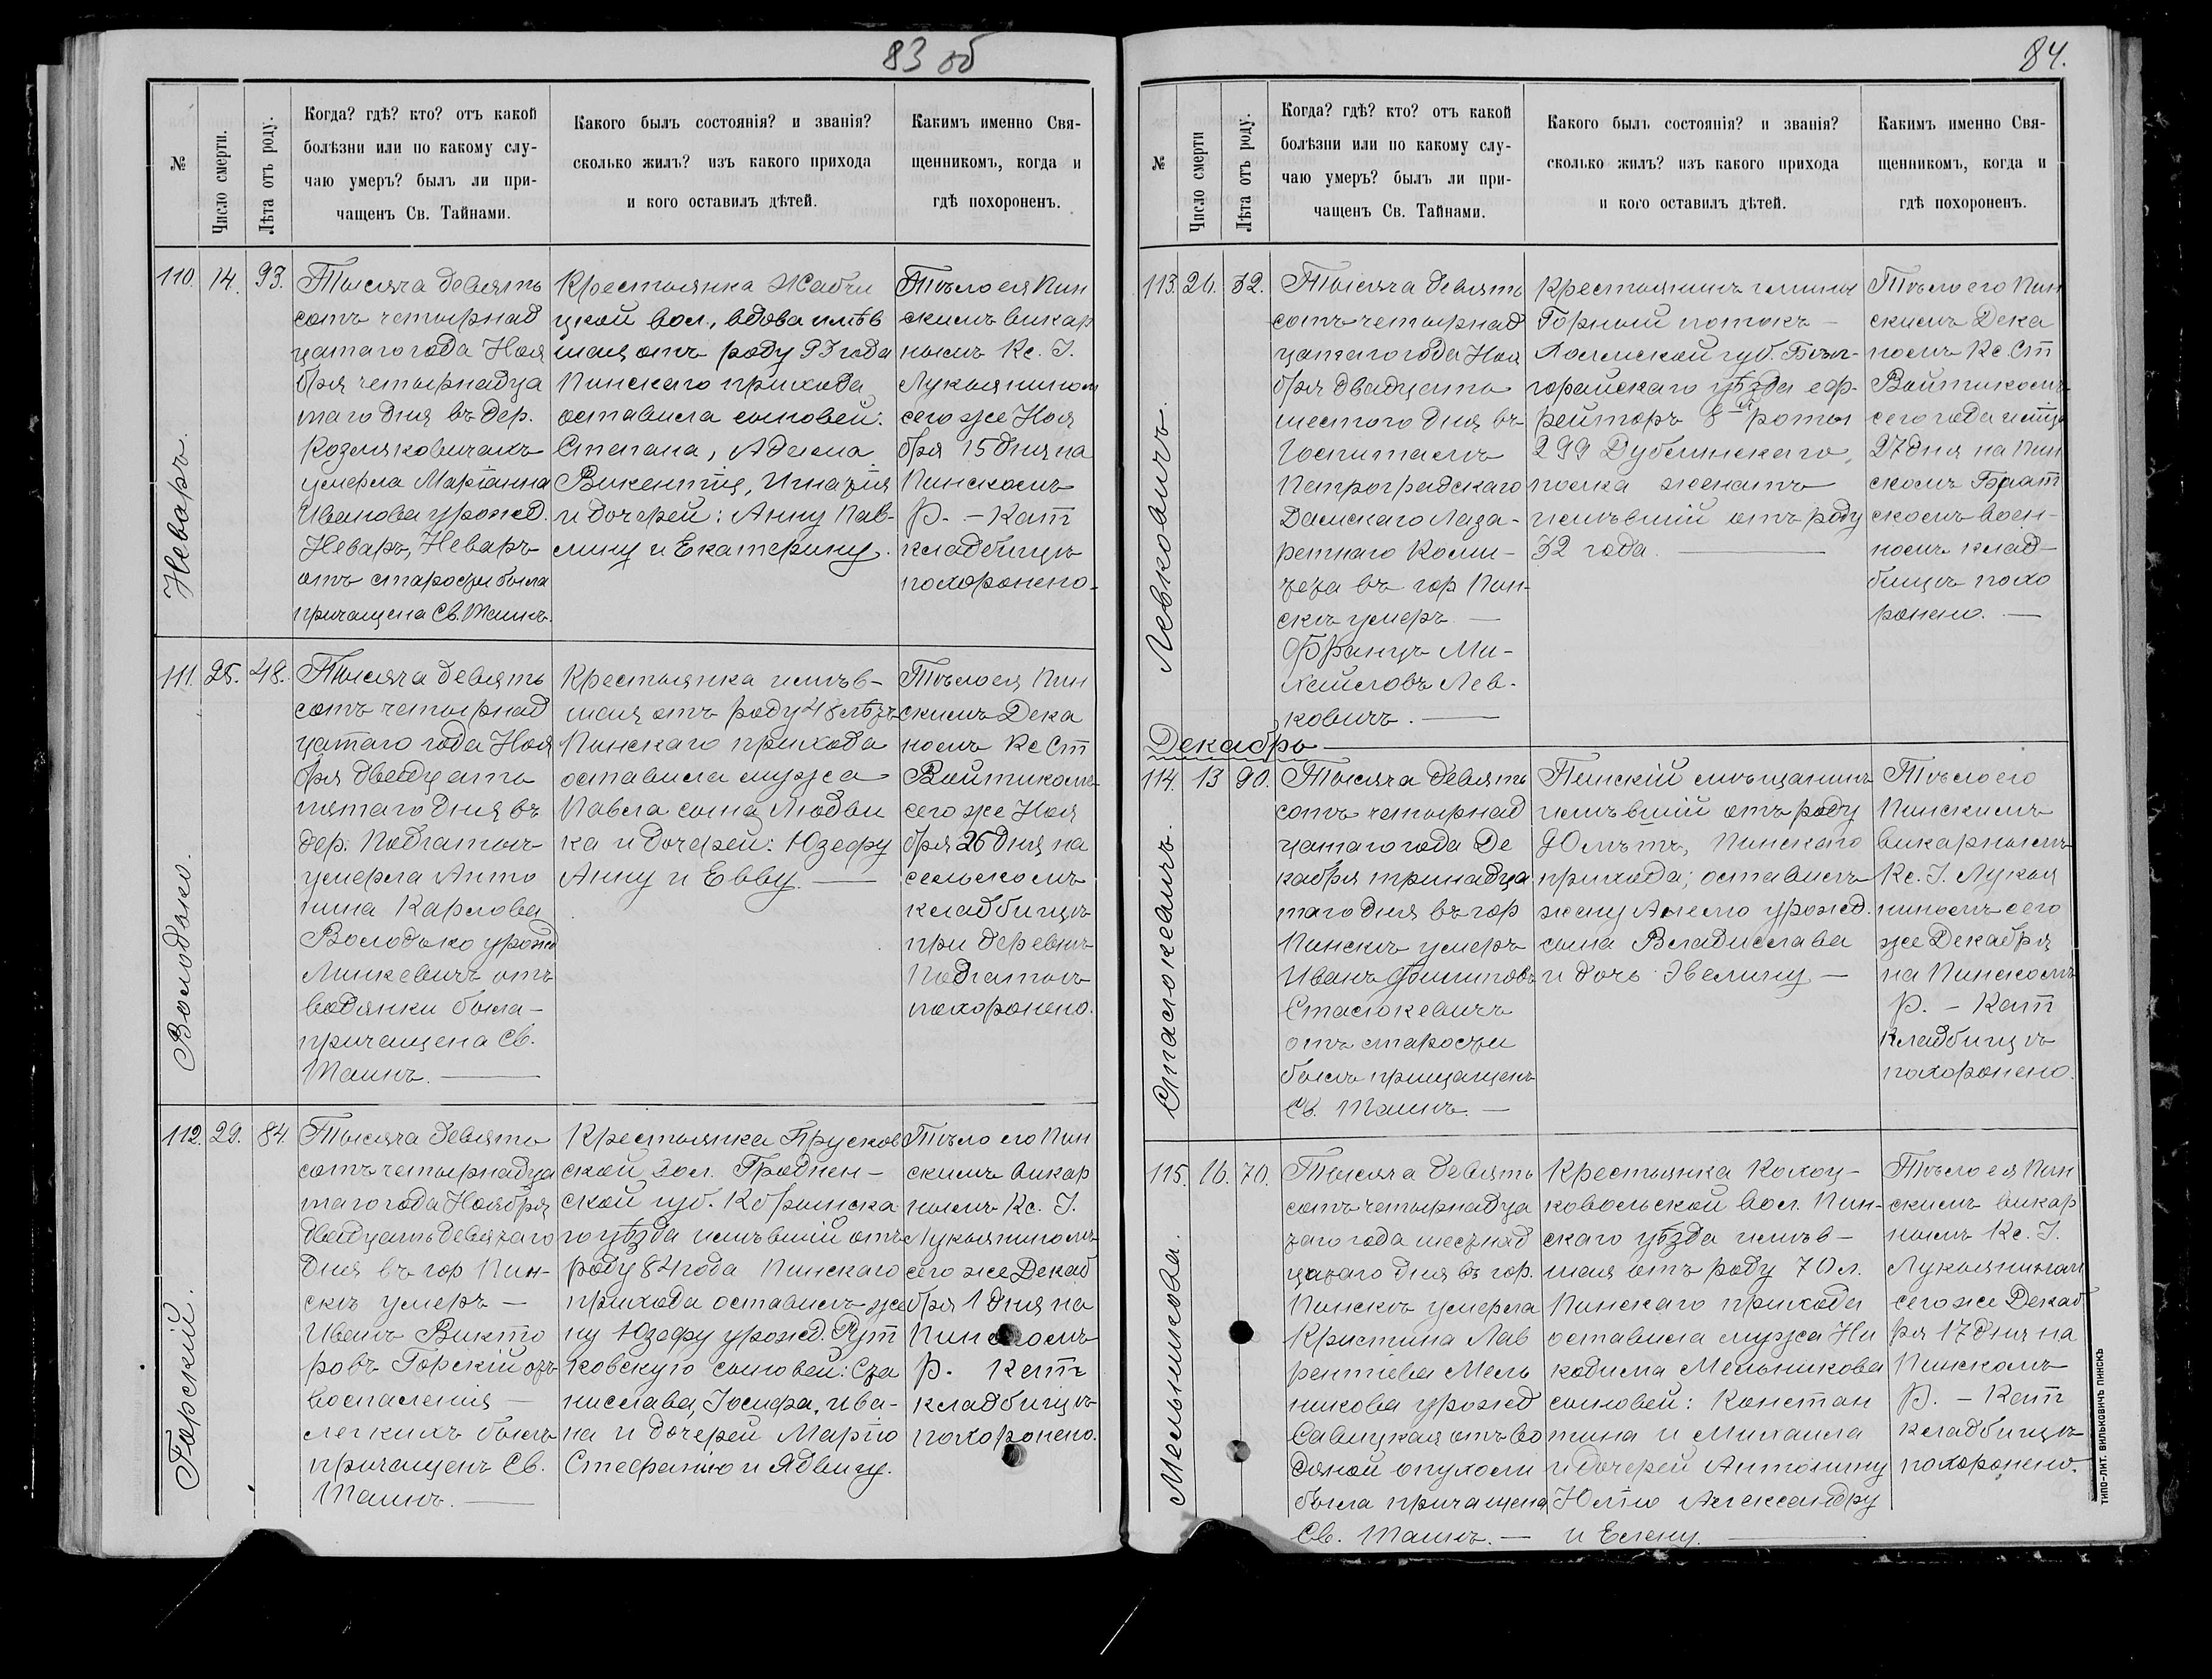 83 об
№
Число смерти.
Лѣта отъ роду.
Когда? гдѣ? кто? отъ какой
болѣзни или по какому слу-
чаю умеръ? былъ ли при-
чащенъ Св. Тайнами.
Какого былъ состоянія? и званія?
сколько жилъ? изъ какого прихода
и кого оставилъ дѣтей.
Какимъ именно Свя-
щенникомъ, когда и
гдѣ похороненъ.
110. 14. 93.
Неваръ.
Тысяча девять
сотъ четырнад
цатаго года Ноя
бря четырнадца
таго дня въ дер.
Козляковичахъ
умерла Маріанна
Иванова урожд.
Неваръ, Неваръ
отъ старости была
причащена Св. Таинъ.
Крестьянка Жабчи
цкой вол., вдова имѣв
шая отъ роду 93 года
Пинскаго прихода
оставила сыновей:
Степана, Адама
Викентія, Игнатія
и дочерей: Анну Пав-
лину и Екатерину.
Тѣло ея Пин
скимъ викар
нымъ Кс. І.
Лукьянином
сего же Ноя
бря 15 дня на
Пинскомъ
Р. - Кат
кладбищѣ
похоронено.
111. 25. 48.
Володько.
Тысяча девять
сотъ четырнад
цатаго года Ноя
бря двадцать
пятаго дня въ
дер. Подгатьи
умерла Анто
нина Карлова
Володько урожд
Минкевичъ отъ
водянки была -
причащена Св.
Таинъ.
Крестьянка имѣв-
шая отъ роду 48 лѣтъ
Пинскаго прихода
оставила мужа
Павла сына Людви
ка и дочерей: Юзефу
Анну и Евву.
Тѣло ея Пин
скимъ Дека
номъ Кс Ст
Войтикомъ
сего же Ноя
бря 26 дня на
сельскомъ
кладбищѣ
при деревнѣ
похоронено.
112. 29. 84.
Горскій.
Тысяча девять
сотъ четырнадца
таго года Ноября
двадцать девятаго
дня въ гор Пин-
скѣ умеръ -
Иванъ Викто
ровъ Горскій отъ
воспаленія -
легкихъ былъ
причащенъ Св.
Таинъ.
Крестьянка Прусков
ской вол. Гроднен-
ской губ. Кобринска
го уѣзда имѣвшій отъ
роду 84 года Пинскаго
прихода оставилъ же
ну Юзефу урожд. Рут
ковскую сыновей: Ста
нислава, Іосифа, Ива-
на и дочерей Марію
Стефанію и Ядвигу.
Тѣло его Пин
скимъ викар
нымъ Кс. І.
Лукьяниномъ
сего же Декаб
бря 1 дня на
Пинскомъ
Р. Катъ
кладбищѣ
похоронено.
84.
№
Число смерти
Лѣта отъ роду.
Когда? гдѣ? кто? отъ какой
болѣзни или по какому слу-
чаю умеръ? былъ ли при-
чащенъ Св. Тайнами.
Какого былъ состоянія? и званія?
сколько жилъ? изъ какого прихода
и кого оставилъ дѣтей.
Какимъ именно Свя-
щенникомъ, когда и
гдѣ похороненъ.
113. 26. 32.
Левковичъ.
Тысяча девять
сотъ четырнад
цатаго года Ноя
бря двадцать
шестого дня въ
Госпиталѣ
Петроградскаго
Дамскаго Лаза-
ретнаго Коми-
тета въ гор Пин-
скѣ умеръ -
Францъ Ми-
хайловъ Лев-
ковичъ.
Крестьянинъ гмины
Горный потокъ -
Холмской губ. Бѣл-
горайскаго уѣзда еф-
рейторъ 8-й роты
299 Дубенскаго,
полка женатъ
имѣвшій отъ роду
32 года.
Тѣло его Пин
скимъ Дека
номъ Кс. Ст
Войтикомъ
сего года и мца
27 дня на Пин
скомъ Брат
скомъ воен-
номъ клад-
бищѣ похо
ронено. -
Декабрь
114. 13 90.
Стасюкевичъ.
Тысяча девять
сотъ четырнад
цатаго года Де
кабря тринадца
таго дня въ гор
Пинскѣ умеръ
Иванъ Филиповъ
Стасюкевичъ
отъ старости
былъ прищащенъ
Св. Таинъ. -
Пинскій мѣщанинъ
имѣвшій отъ роду
90 лѣтъ, Пинскаго
прихода; оставилъ
жену урожд.
сына Владислава
и дочь Эвелину -
Тѣло его
Пинскимъ
викарнымъ
Кс. І. Лукья
ниномъ сего
же Декабря
на Пинскомъ
Р. - Кат
кладбищѣ
похоронено.
115. 16. 70.
Мельникова.
Тысяча девять
сотъ четырнадца
таго года шестнад
цатаго дня въ гор.
Пинскѣ умерла
Кристина Лав
рентіева Мель
никова урожд
Савицкая отъ во
дяной опухоли
была причащена
Св. Таинъ. -
Крестьянка Хойно-
ковольской вол. Пин-
скаго уѣзда имѣв-
шая отъ роду 70 л.
Пинскаго прихода
оставила мужа Ни
кодима Мельникова
сыновей: Констан
тина и Михаила
и дочерей Антонину
Юлію Александру
и Елену.
Тѣло ея Пин
скимъ викар
нымъ Кс. І.
Лукьянинам
сего же Декаб
ря 17 дня на
Пинскомъ
Р. - Кат
кладбищѣ
похоронено.
ТИПО-ЛИТ. ВИЛЬКОВИЧЪ ПИНСКЪ